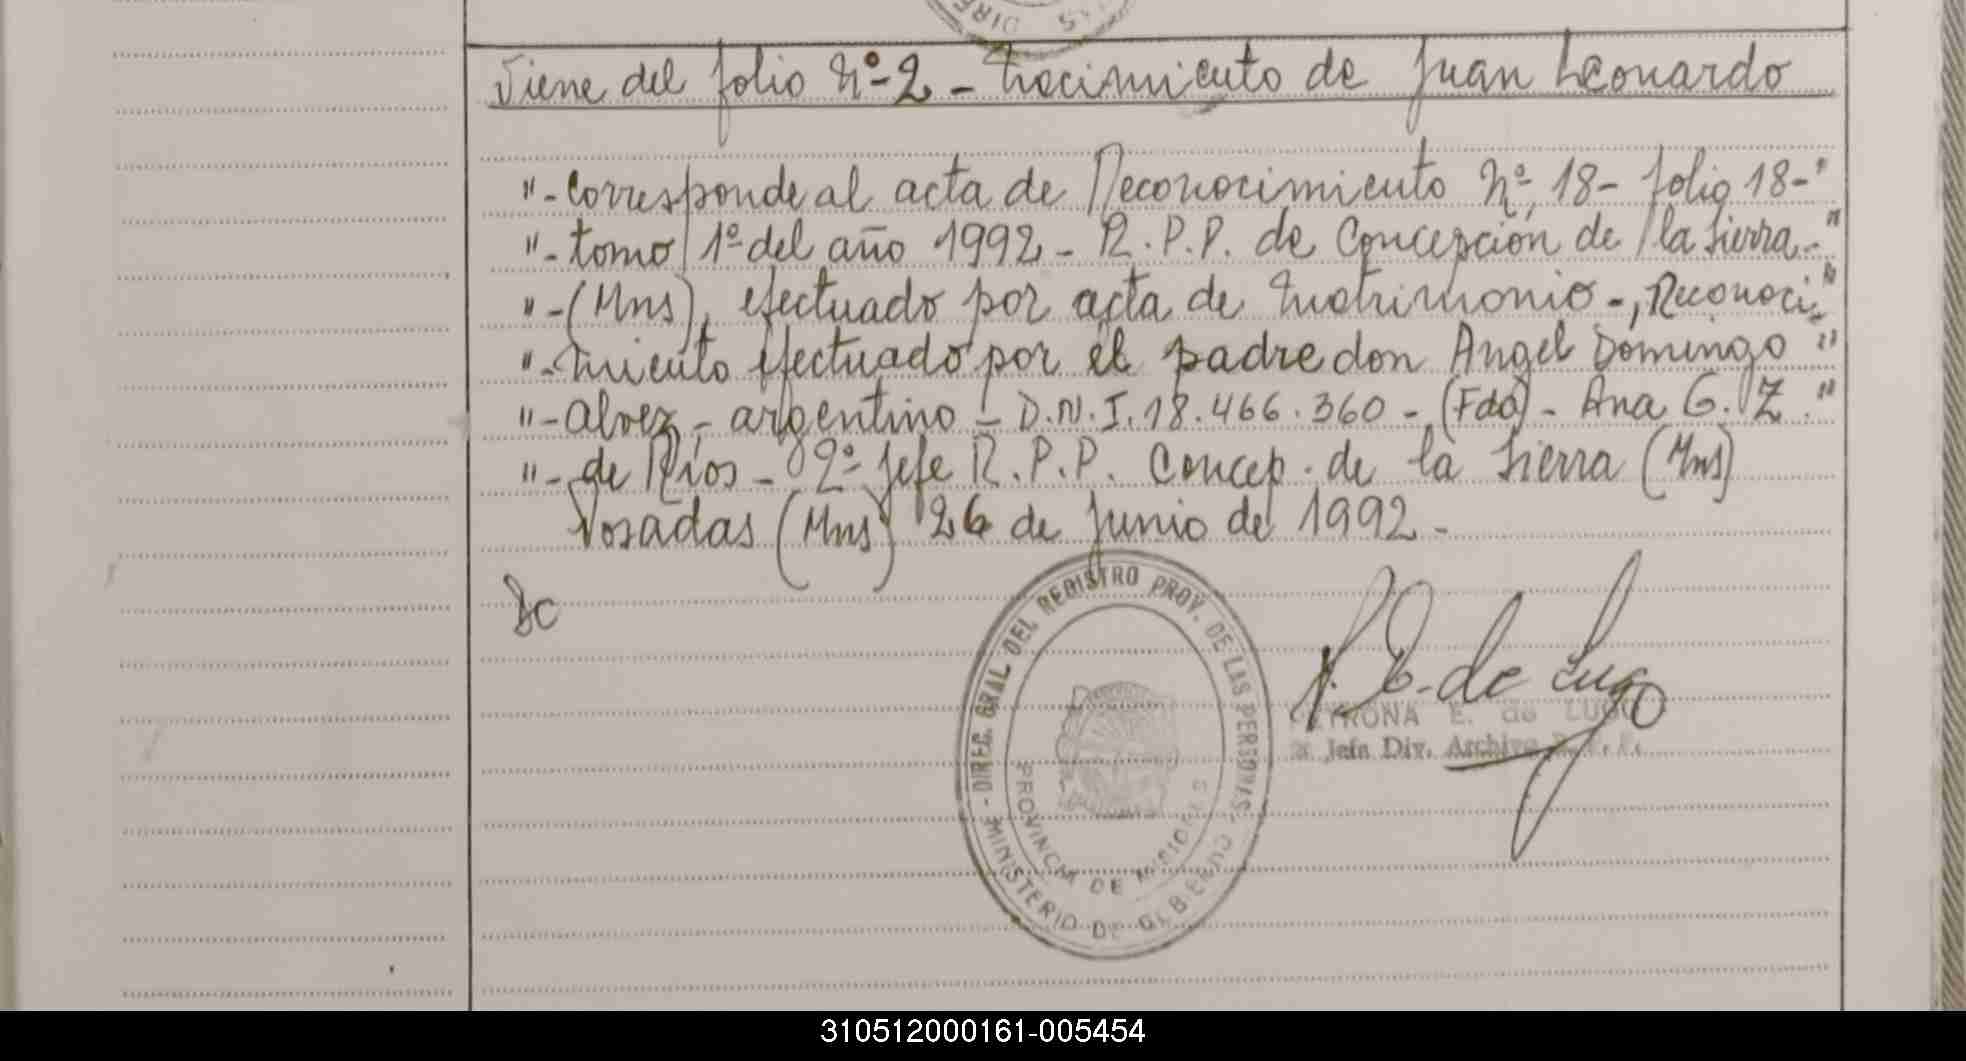 Viene del folio Nº-2 - Nacimiento de Juan Leonardo
"-Corresponde al acta de Reconocimiento Nº 18- folio 18-"
"-tomo 1º del año 1992 - R.P.P. de Concepción de la Sierra.-"
"-(Mns), efectuado por acta de Matrimonio-, Reconoci-"
"-miento efectuado por el padre don Angel Domingo "
"-Alvez - argentino - D.N.I. 18.466.360 - (Fdo) - Ana G. Z."
"-de Ríos - 2º Jefe R.P.P. Concep. de la Sierra (Mns)
Posadas (Mns) 26 de Junio de 1992 -
P. E. de Lugo
PETRONA E. de LUGO
Jefa Div. Archivo R. P. P.
-DIREC. GRAL DEL REGISTRO PROV. DE LAS PERSONAS-
PROVINCIA DE MISIONES
MINISTERIO DE GOBIERNO
310512000161-005454